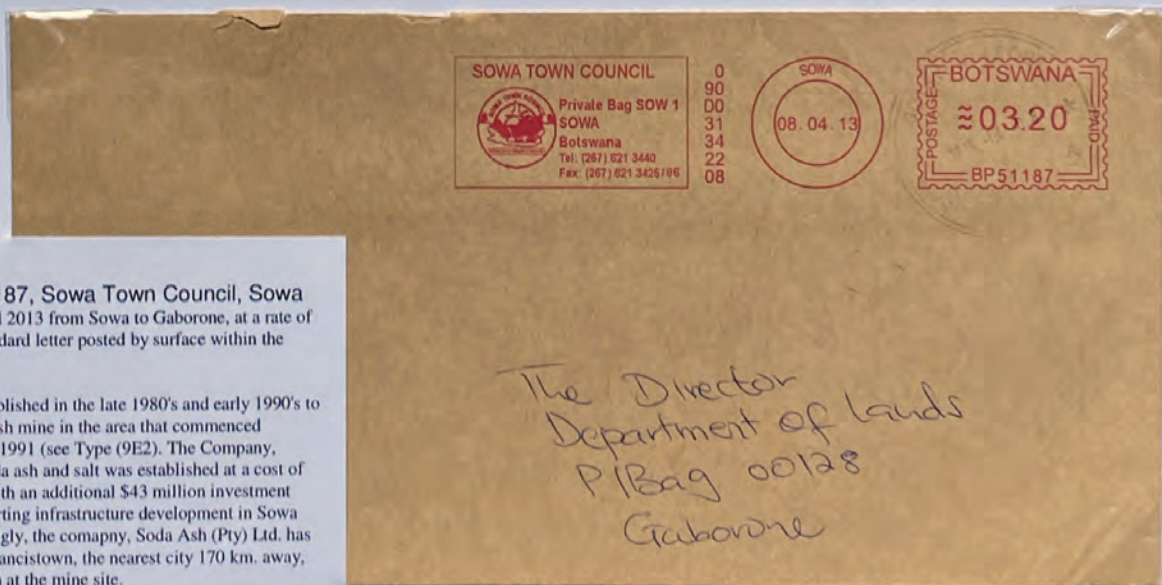 SOWA TOWN COUNCIL
SOWA TOWN COUNCIL
Private Bag SOW 1
SOWA
Botswana
Tel: (267) 621 3440
Fax: (267) 621 3425/06
0
90
D0
31
34
22
08
SOWA
08.04.13
BOTSWANA
POSTAGE
≈03.20
PAID
BP51187
87, Sowa Town Council, Sowa
2013 from Sowa to Gaborone, at a rate of
dard letter posted by surface within the
blished in the late 1980's and early 1990's to
sh mine in the area that commenced
1991 (see Type (9E2). The Company,
a ash and salt was established at a cost of
th an additional $43 million investment
ting infrastructure development in Sowa
gly, the comapny, Soda Ash (Pty) Ltd. has
ancistown, the nearest city 170 km. away,
at the mine site.
The Director
Department of Lands
P/Bag 00128
Gaborone